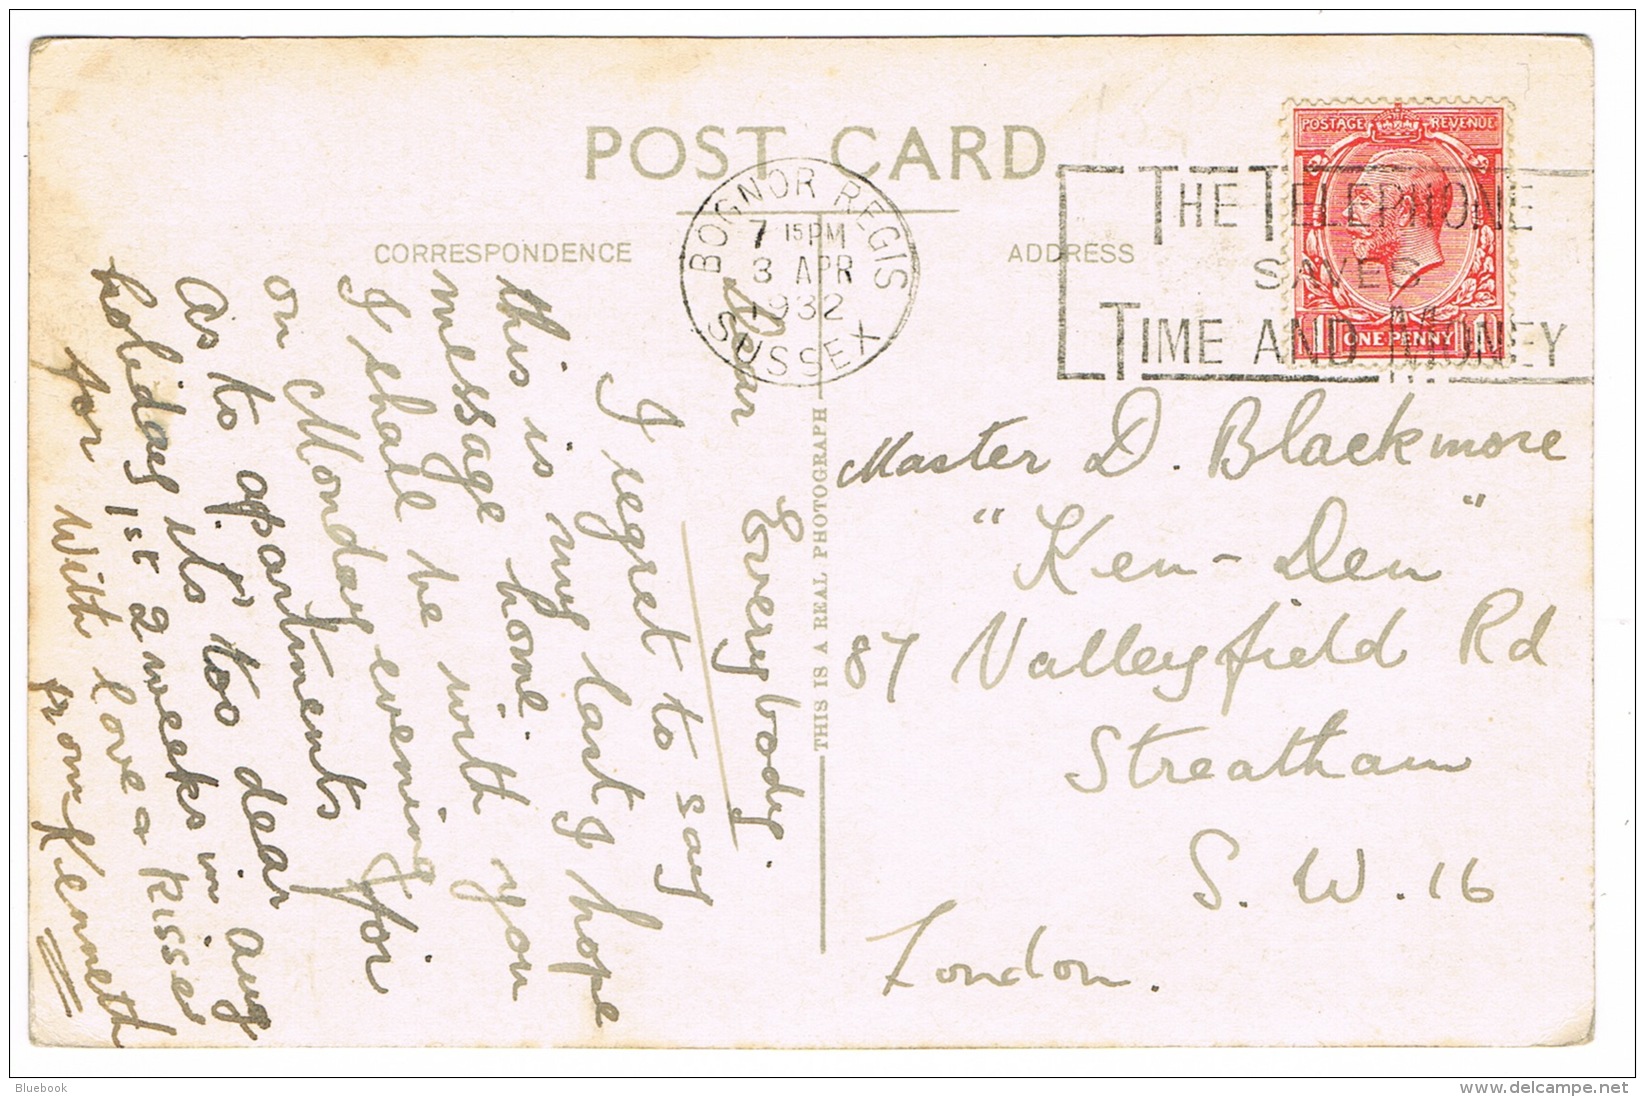 POST CARD
CORRESPONDENCE
ADDRESS
BOGNOR REGIS
7 15PM
3 APR
1932
SUSSEX
THE TELEPHONE
SAVES
TIME AND MONEY
POSTAGE REVENUE
1 ONE PENNY 1
THIS IS A REAL PHOTOGRAPH
Dear Everybody.
I regret to say
this is my last I hope
message home.
I shall be with you
on Monday evening for
As to apartments
holiday its too dear
for 1st 2 weeks in aug
With love & kisses
from Kenneth
Master D. Blackmore
"Ken-Den"
87 Valleyfield Rd
Streatham
S.W.16
London.
Bluebook
delcampe.net